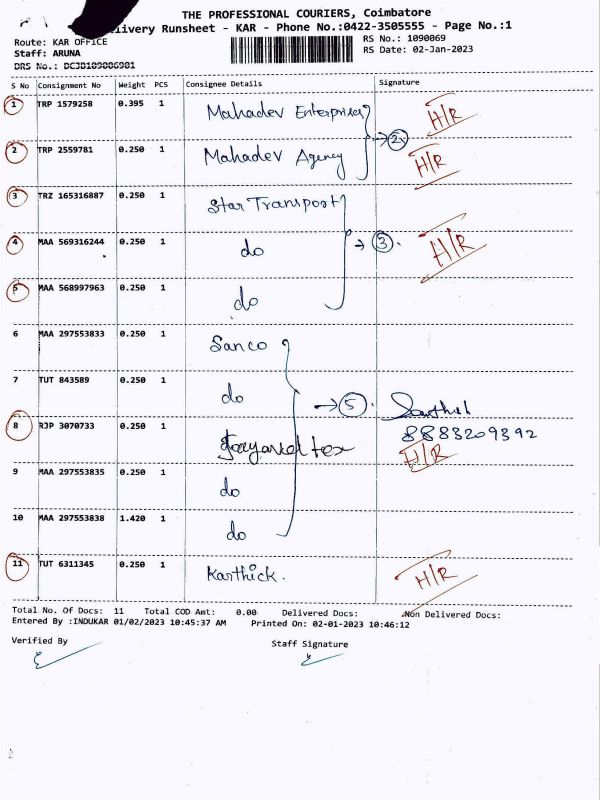 THE PROFESSIONAL COURIERS, Coimbatore
livery Runsheet - KAR - Phone No.:0422-3505555 - Page No.:1
Route: KAR OFFICE RS No.: 1090069
Staff: ARUNA RS Date: 02-Jan-2023
DRS No.:
S No Consignment No Weight PCS Consignee Details Signature
1 TRP 1579258 0.395 1 Mahadev Enterprises H/R
2 TRP 2559781 0.250 1 Mahadev Agency H/R
3 TRZ 165316887 0.250 1 Star Transport
4 MAA 569316244 0.250 1 do → 3. H/R
5 MAA 568997963 0.250 1 do
6 MAA 297553833 0.250 1 Sanco
7 TUT 843589 0.250 1 do → 5.
8883209392
8 RJP 3070733 0.250 1 H/R
9 MAA 297553835 0.250 1 do
10 MAA 297553838 1.420 1 do
11 TUT 6311345 0.250 1 Karthick. H/R
Total No. Of Docs: 11 Total COD Amt: 0.00 Delivered Docs: Non Delivered Docs:
Entered By :INDUKAR 01/02/2023 10:45:37 AM Printed On: 02-01-2023 10:46:12
Verified By Staff Signature